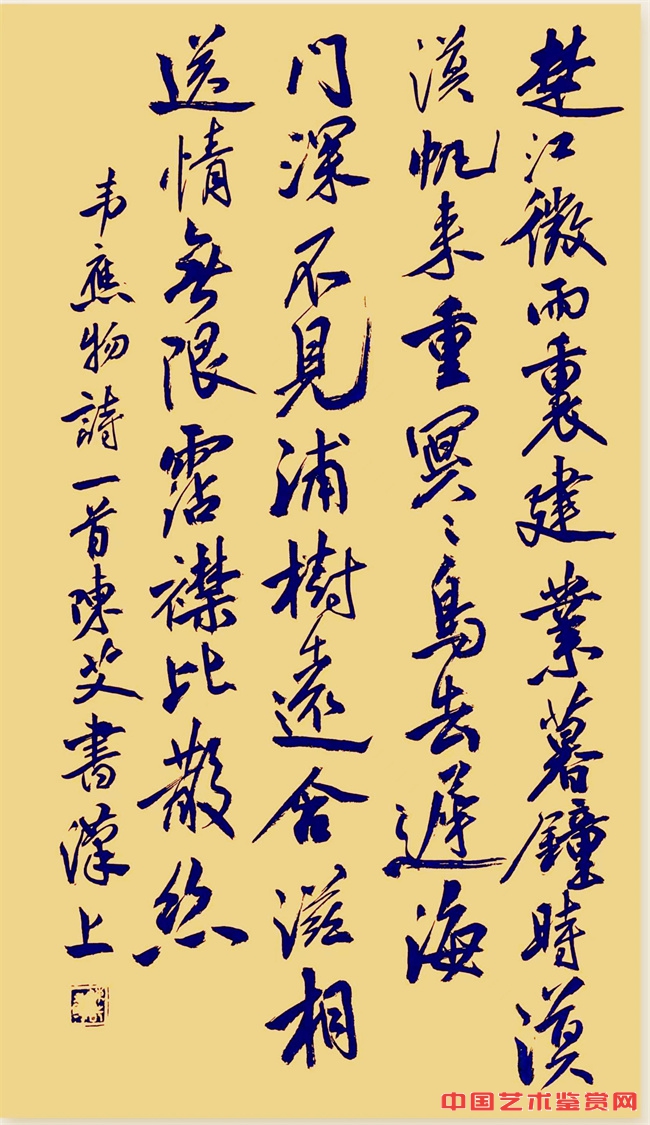 楚江微雨裏建業暮鐘時漠
漠帆来重冥〻鳥去遲海
门深不見浦樹遠含滋相
送情無限霑襟比散丝
韦應物詩一首陳艾書漢上
中国艺术鉴赏网